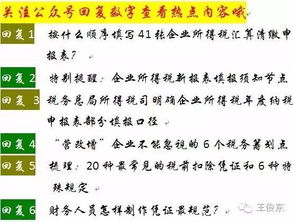 关注公众号回复数字查看热点内容哦
回复1 按什么顺序填写41张企业所得税汇算清缴
申报表?
回复2 特别提醒：企业所得税新报表填报须知节点
回复3 税务总局所得税司明确企业所得税年度纳税
申报表部分填报口径
回复4 “营改增”企业不能忽视的6个税务筹划点
回复5 梳理：20种最常见的税前扣除凭证和6种特
殊规定
回复6 财务人员怎样制作凭证最规范?
王俊东